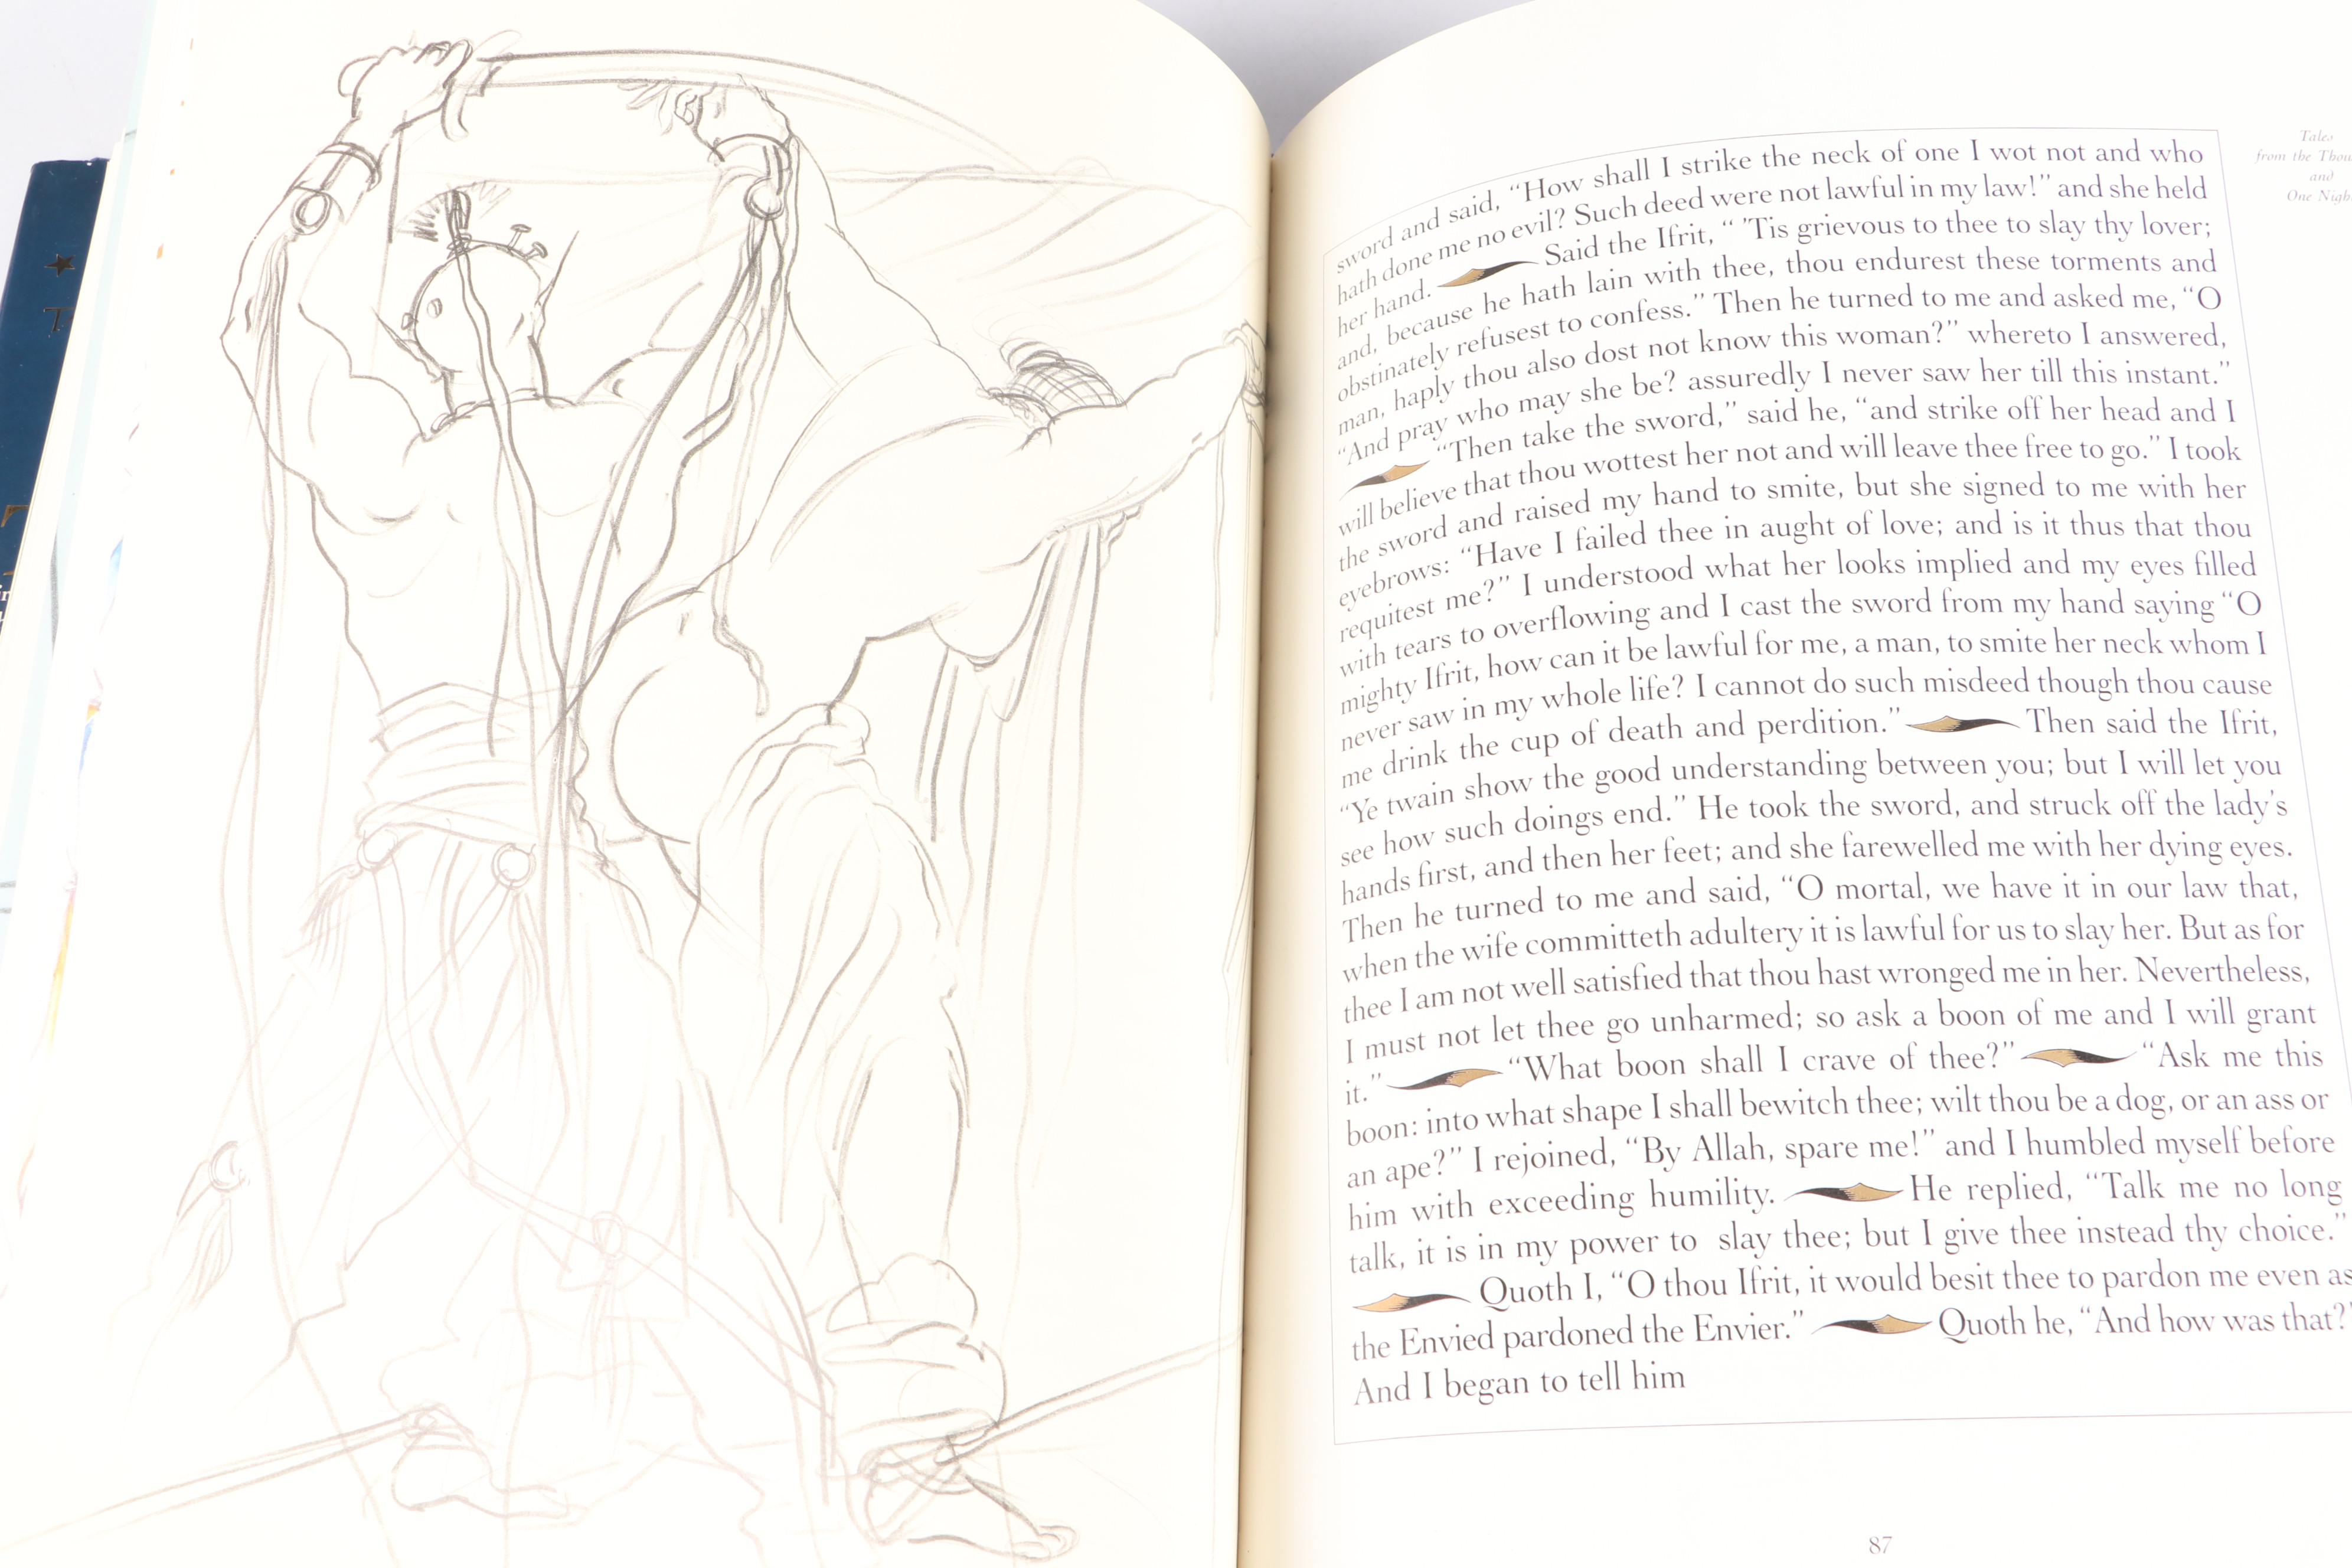 Tales
from the Thou
and
One Nigh
sword and said, “How shall I strike the neck of one I wot not and who
hath done me no evil? Such deed were not lawful in my law!” and she held
her hand. Said the Ifrit, “ ’Tis grievous to thee to slay thy lover;
and, because he hath lain with thee, thou endurest these torments and
obstinately refusest to confess.” Then he turned to me and asked me, “O
man, haply thou also dost not know this woman?” whereto I answered,
“And pray who may she be? assuredly I never saw her till this instant.”
“Then take the sword,” said he, “and strike off her head and I
will believe that thou wottest her not and will leave thee free to go.” I took
the sword and raised my hand to smite, but she signed to me with her
eyebrows: “Have I failed thee in aught of love; and is it thus that thou
requitest me?” I understood what her looks implied and my eyes filled
with tears to overflowing and I cast the sword from my hand saying “O
mighty Ifrit, how can it be lawful for me, a man, to smite her neck whom I
never saw in my whole life? I cannot do such misdeed though thou cause
me drink the cup of death and perdition.” Then said the Ifrit,
“Ye twain show the good understanding between you; but I will let you
see how such doings end.” He took the sword, and struck off the lady’s
hands first, and then her feet; and she farewelled me with her dying eyes.
Then he turned to me and said, “O mortal, we have it in our law that,
when the wife committeth adultery it is lawful for us to slay her. But as for
thee I am not well satisfied that thou hast wronged me in her. Nevertheless,
I must not let thee go unharmed; so ask a boon of me and I will grant
it.” “What boon shall I crave of thee?” “Ask me this
boon: into what shape I shall bewitch thee; wilt thou be a dog, or an ass or
an ape?” I rejoined, “By Allah, spare me!” and I humbled myself before
him with exceeding humility. He replied, “Talk me no long
talk, it is in my power to slay thee; but I give thee instead thy choice.”
Quoth I, “O thou Ifrit, it would besit thee to pardon me even as
the Envied pardoned the Envier.” Quoth he, “And how was that?”
And I began to tell him
87